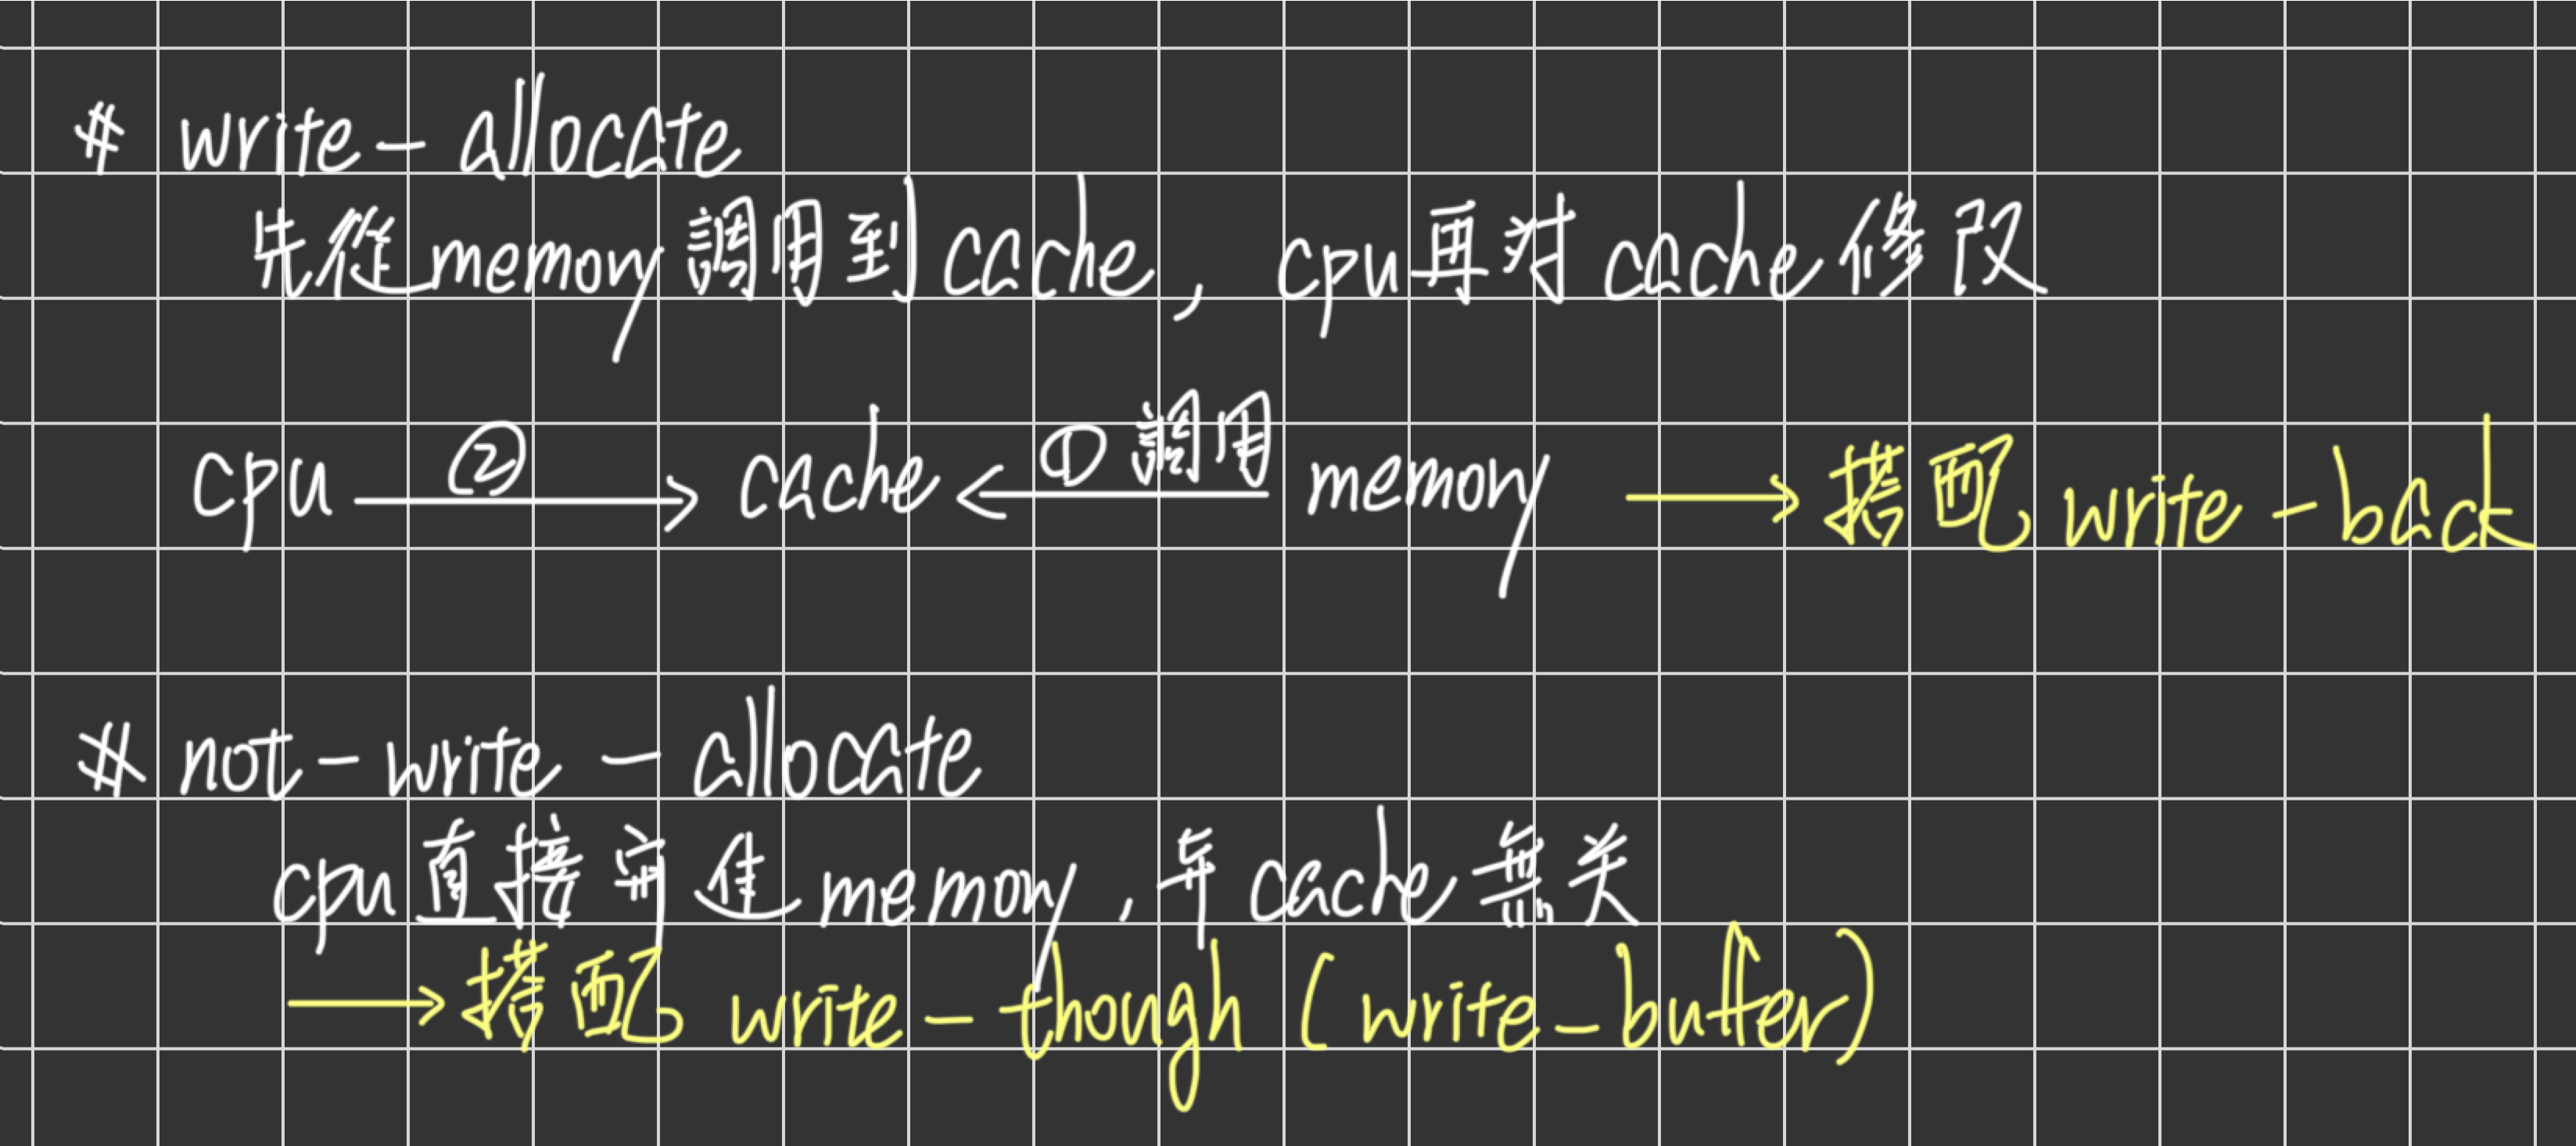 # write-allocate
先從memory調用到cache, cpu再对cache修改
cpu ② → cache ← ① 調用 memory → 搭配 write-back
# not-write-allocate
cpu直接寫進memory, 与cache無关
→ 搭配 write-though (write-buffer)